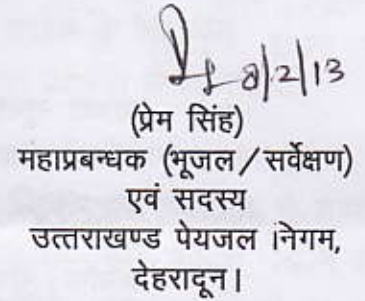 8/2/13
(प्रेम सिंह)
महाप्रबन्धक (भूजल/सर्वेक्षण)
एवं सदस्य
उत्तराखण्ड पेयजल निगम,
देहरादून।